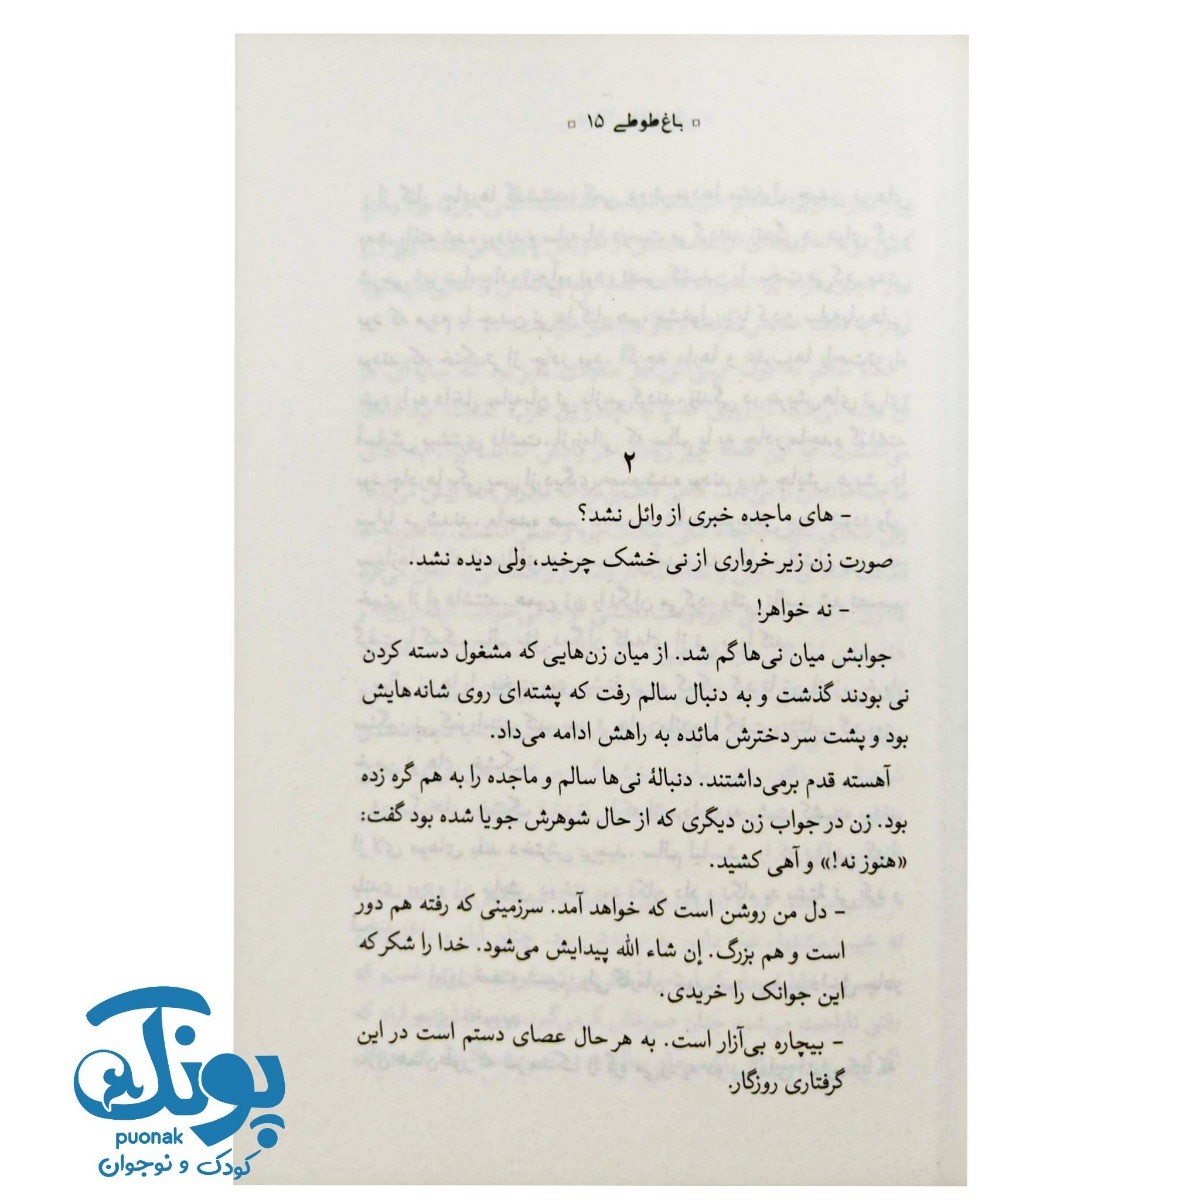 ▫ باغ طوطی ۱۵ ▫
۲
– های ماجده خبری از وائل نشد؟
صورت زن زیر خرواری از نی خشک چرخید، ولی دیده نشد.
– نه خواهر!
جوابش میان نی‌ها گم شد. از میان زن‌هایی که مشغول دسته کردن
نی بودند گذشت و به دنبال سالم رفت که پشته‌ای روی شانه‌هایش
بود و پشت سر دخترش مائده به راهش ادامه می‌داد.
آهسته قدم برمی‌داشتند. دنبالهٔ نی‌ها سالم و ماجده را به هم گره زده
بود. زن در جواب زن دیگری که از حال شوهرش جویا شده بود گفت:
«هنوز نه!» و آهی کشید.
– دل من روشن است که خواهد آمد. سرزمینی که رفته هم دور
است و هم بزرگ. إن شاء الله پیدایش می‌شود. خدا را شکر که
این جوانک را خریدی.
– بیچاره بی‌آزار است. به هر حال عصای دستم است در این
گرفتاری روزگار.
پونک
puonak
کودک و نوجوان